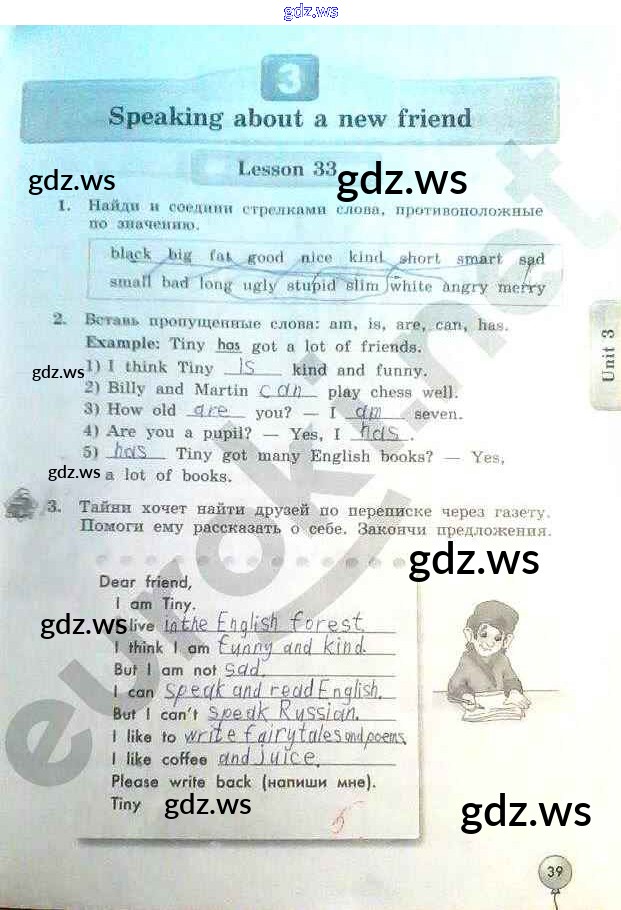 gdz.ws
3
Speaking about a new friend
Lesson 33
gdz.ws
gdz.ws
1. Найди и соедини стрелками слова, противоположные
по значению.
black big fat good nice kind short smart sad
small bad long ugly stupid slim white angry merry
2. Вставь пропущенные слова: am, is, are, can, has.
Example: Tiny has got a lot of friends.
gdz.ws
1) I think Tiny is kind and funny.
2) Billy and Martin can play chess well.
3) How old are you? — I am seven.
4) Are you a pupil? — Yes, I has.
5) has Tiny got many English books? — Yes,
gdz.ws
a lot of books.
Unit 3
3. Тайни хочет найти друзей по переписке через газету.
Помоги ему рассказать о себе. Закончи предложения.
gdz.ws
Dear friend,
I am Tiny.
gdz.ws
live in the English forest
I think I am funny and kind.
But I am not sad.
I can speak and read English.
But I can't speak Russian.
I like to write fairytales and poems
I like coffee and juice.
Please write back (напиши мне).
Tiny
gdz.ws
gdz.ws
5
39
euroki.net